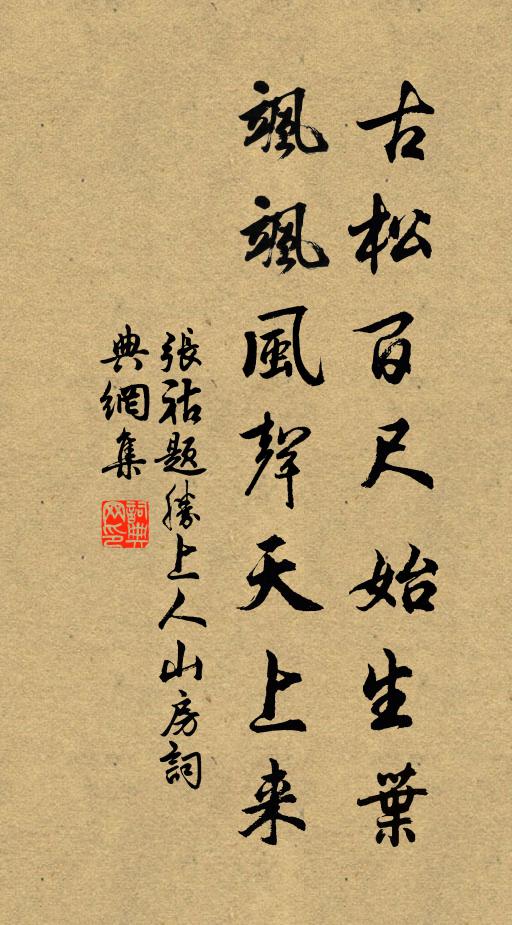 古松百尺始生葉
颯颯風聲天上来
張祜題勝上人山房詞
典網集
詞典網印